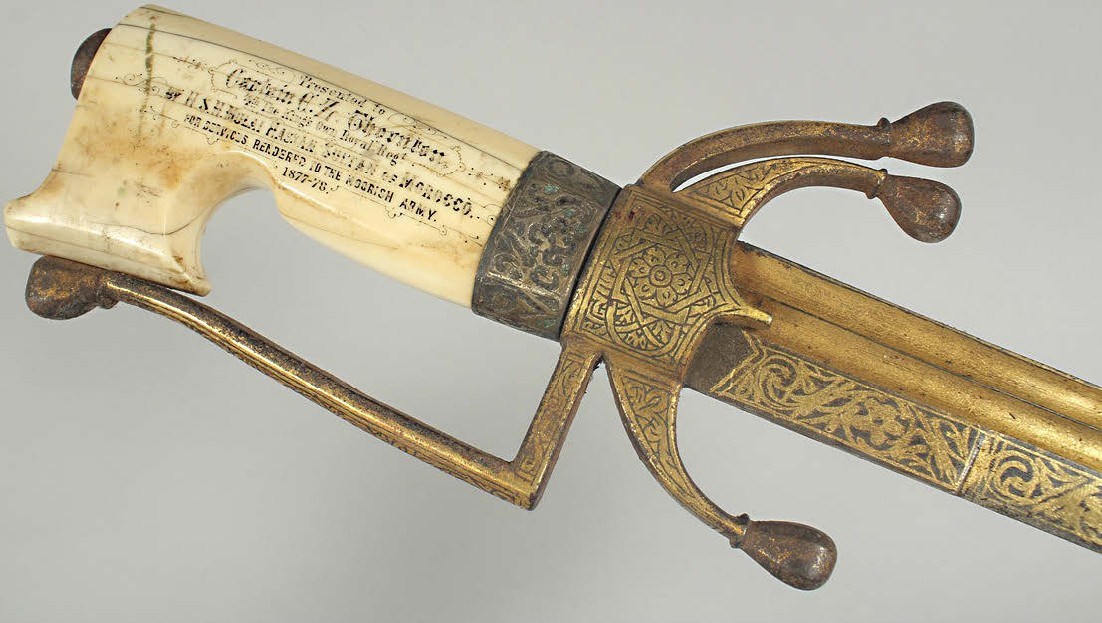 Presented to
Captain
Own Royal Regt
BY H.S.H. MULAI SULTAN OF MOROCCO.
FOR SERVICES RENDERED TO THE MOORISH ARMY.
1877-78.